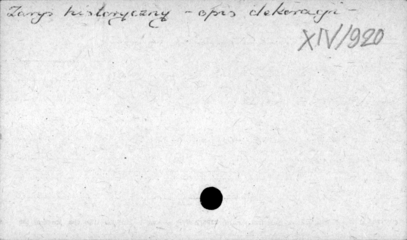 Zarys historyczny - opis dekoracji -
XIV/920